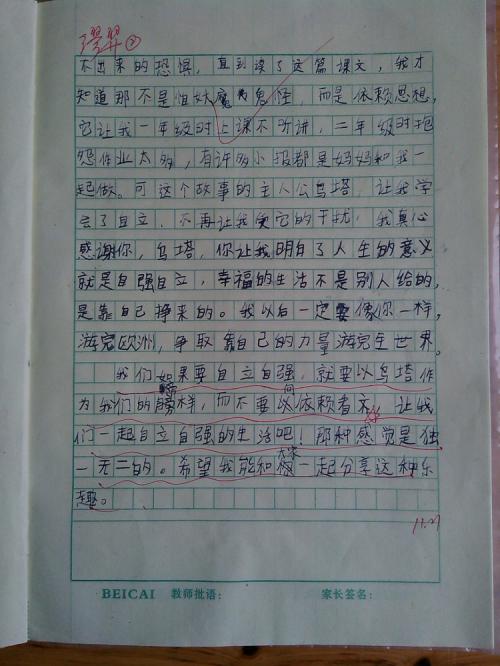 不出来的恐惧，直到读了这篇课文，我才
知道那不是妖魔鬼怪，而是依赖思想，
它让我一年级时上课不听讲，二年级时抱
怨作业太多，有许多小报都是妈妈和我一
起做。可这个故事的主人公乌塔，让我学
会了自立，不再让我受它的干扰，我真心
感谢你，乌塔，你让我明白了人生的意义
就是自强自立，幸福的生活不是别人给的，
是靠自己挣来的。我以后一定要像你一样，
游完欧洲，争取靠自己的力量游完全世界。
我们如果要自立自强，就要以乌塔作
为我们的榜样，而不要向依赖看齐，让我
们一起自立自强的生活吧！那种感觉是独
一无二的。希望我能和大家一起分享这种乐
趣。
11.27
BEICAI 教师批语： 家长签名：